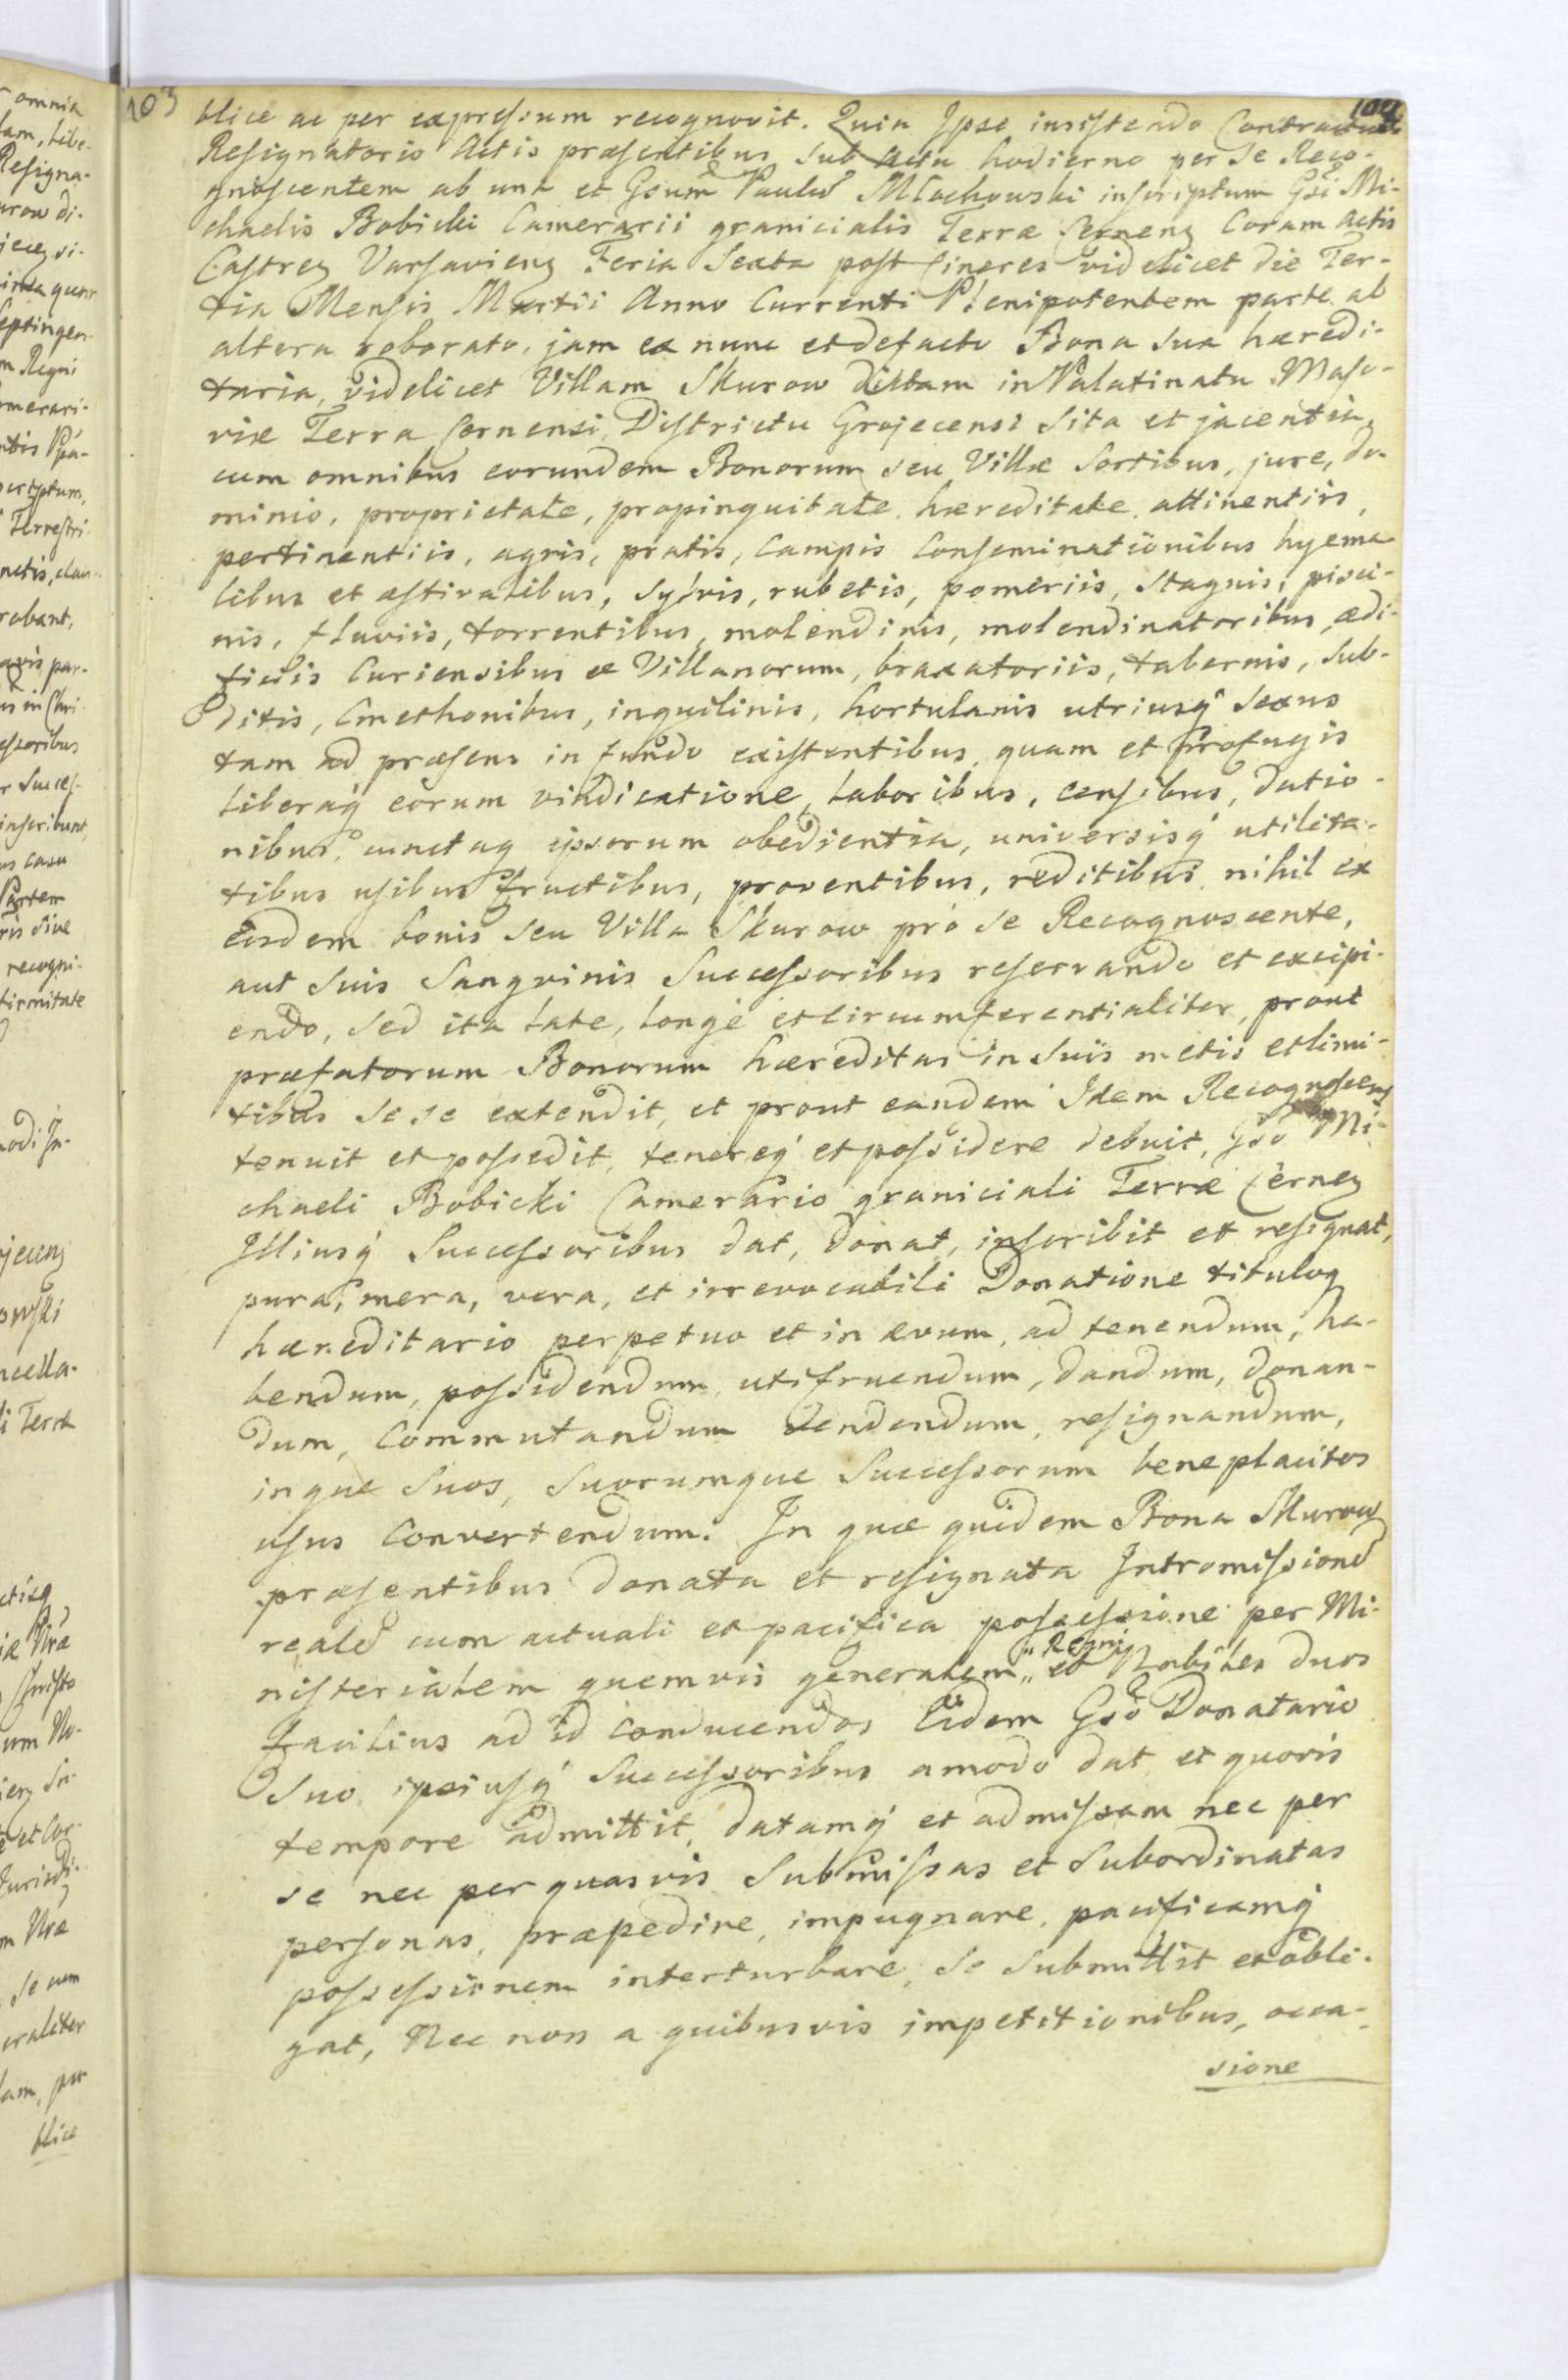 omnia
Resigna-
Regni
merari-
Terrestri
essoribus
casu
sive
recogni-
firmitate
Terra
se cum
blice
103
104
blice ac per expressum recognovit. Quia Ipse insistendo Contractui
Resignatorio Actis præsentibus sub Actu hodierno per se Reco-
gnoscentem ab una et Gsum Paulũ Mlochowski inscriptum Gsi Mi-
chaelis Bobicki Camerarii granicialis Terræ Cernenʒ Coram Actis
Castrenʒ Varsavienʒ Feria Sexta post Cineres videlicet die Ter-
tia Mensis Martii Anno Currenti Plenipotentem parte ab
altera roborato, jam ex nunc et defacto Bona sua hæredi-
taria, videlicet Villam Skurow dictam in Palatinatu Maso-
viæ Terra Cernensi, Districtu Grojecensi sita et jacentia,
cum omnibus eorundem Bonorum seu Villæ Sortibus, jure, do-
minio, proprietate, propinquitate hæreditate, attinentiis,
pertinentiis, agris, pratis, campis Conseminationibus hyema-
libus et æstivalibus, sylvis, rubetis, pomeriis, stagnis, pisci-
nis, fluviis, torrentibus, molendinis, molendinatoribus, ædi-
ficiis Curiensibus et Villanorum, braxatoriis, tabernis, sub-
ditis, Cmethonibus, inquilinis, hortulanis utriusq̃ sexus
tam ad præsens in fundo existentibus, quam et profugis
liberaq̃ eorum vindicatione, laboribus, censibus, datio-
nibus, cunctaq ipsorum obedientia, universisq̃ utilita-
tibus usibus fructibus, proventibus, reditibus, nihil ex
eisdem bonis seu Villa Skurow pro se Recognoscente,
aut suis Sangvinis Successoribus reservando et excipi-
endo, sed ita late, longe et circumferentialiter, prout
præfatorum Bonorum hæreditas in suis metis et limi-
tibus se se extendit, et prout eandem Idem Recognoscens
tenuit et possedit, tenereq̃ et possidere debuit, Gso Mi-
chaeli Bobicki Camerario graniciali Terræ Cernenʒ
Illiusq̃ Successoribus dat, donat, inscribit et resignat,
pura, mera, vera, et irrevocabili Donatione tituloq
hæreditario perpetuo et in ævum, ad tenendum, ha-
bendum, possidendum, utifruendum, dandum, donan-
dum, Commutandum vendendum, resignandum,
inque suos, suorumque Successorum beneplacitos
usus Convertendum. In quæ quidem Bona Skurow
præsentibus donata et resignata Intromissionẽ
realẽ cum actuali et pacifica possessione per Mi-
nisterialem quemvis generalem „Regni„ et Nobiles duos
facilius ad id conducendos Eidem Gso Donatario
suo ipsiusq̃ Successoribus amodo dat et quovis
tempore admittit, datamq̃ et admissam nec per
se nec per quasvis submissas et subordinatas
personas, præpedire, impugnare, pacificamq̃
possessionem interturbare, se submittit et obli-
gat, Nec non a quibusvis impetitionibus, occa-
sione